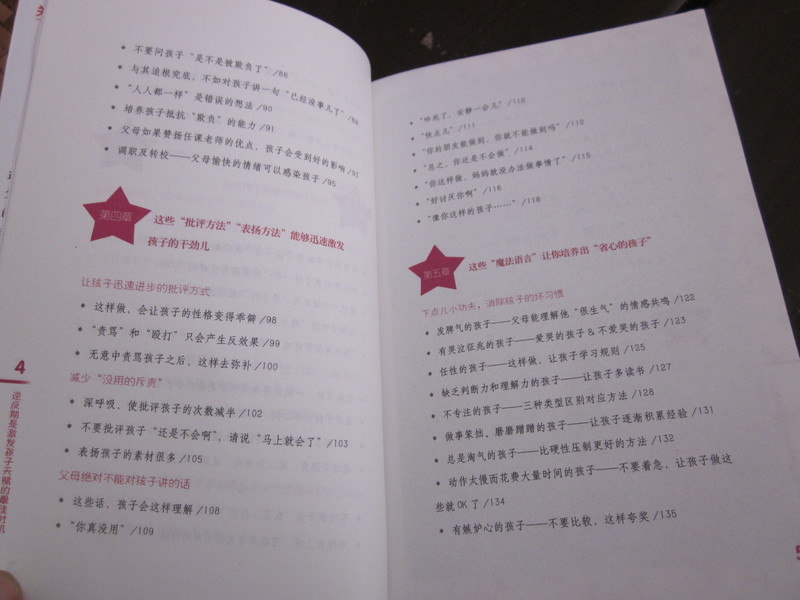 不要问孩子“是不是被欺负了”/86
与其追根究底，不如对孩子讲一句“已经没事儿了”/89
“人人都一样”是错误的想法/90
培养孩子抵抗“欺负”的能力/91
父母如果赞扬任课老师的优点，孩子会受到好的影响/91
调职及转校——父母愉快的情绪可以感染孩子/95
第四章
这些“批评方法”“表扬方法”能够迅速激发
孩子的干劲儿
让孩子迅速进步的批评方式
这样做，会让孩子的性格变得乖僻/98
“责骂”和“殴打”只会产生反效果/99
无意中责骂孩子之后，这样去弥补/100
减少“没用的斥责”
深呼吸，使批评孩子的次数减半/102
不要批评孩子“还是不会啊”，请说“马上就会了”/103
表扬孩子的素材很多/105
父母绝对不能对孩子讲的话
这些话，孩子会这样理解/108
“你真没用”/109
4
逆反期是激发孩子天赋的最佳时机
“吵死了，安静一会儿”/110
“快点儿”/111
“你的朋友能做到，你就不能做到吗”/112
“总之，你还是不会做”/114
“你这样做，妈妈就没办法做事情了”/115
“好讨厌你啊”/116
“像你这样的孩子……”/118
第五章
这些“魔法语言”让你培养出“省心的孩子”
下点儿小功夫，消除孩子的坏习惯
发脾气的孩子——父母能理解他“很生气”的情感共鸣/122
有哭泣征兆的孩子——爱哭的孩子&不爱哭的孩子/123
任性的孩子——这样做，让孩子学习规则/125
缺乏判断力和理解力的孩子——让孩子多读书/127
不专注的孩子——三种类型区别对应方法/128
做事笨拙、磨磨蹭蹭的孩子——让孩子逐渐积累经验/131
总是淘气的孩子——比硬性压制更好的方法/132
动作太慢而花费大量时间的孩子——不要着急，让孩子做这
些就OK了/134
有嫉妒心的孩子——不要比较，这样夸奖/135
5